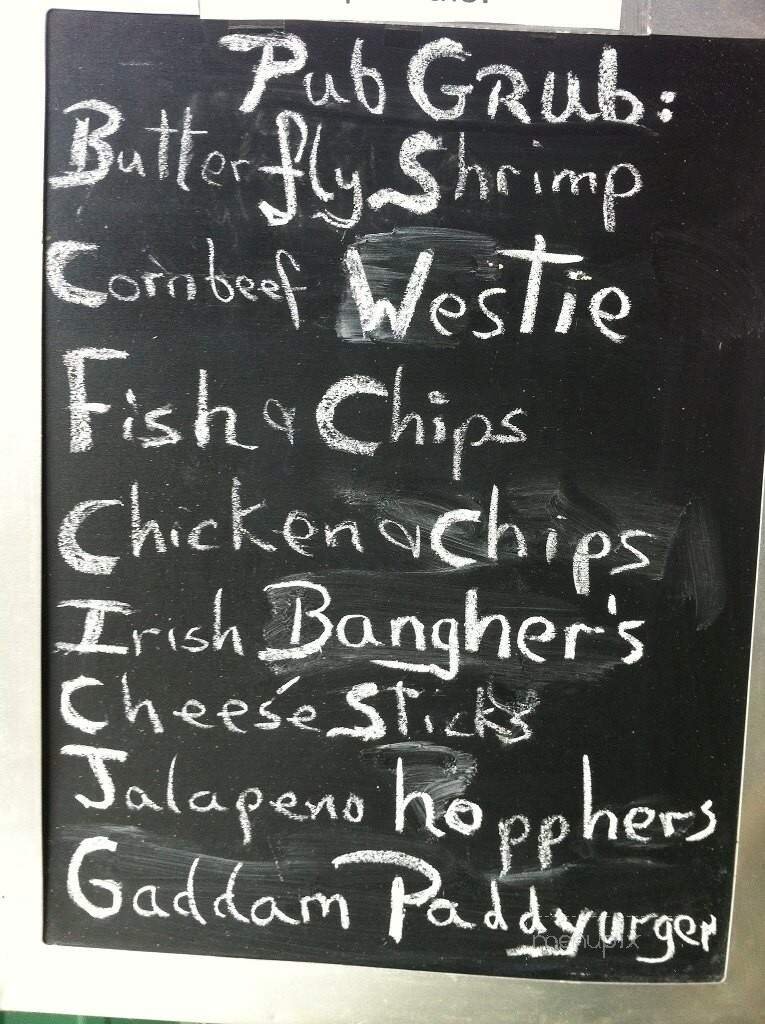 Pub GRUb:
Butterfly Shrimp
Cornbeef Westie
Fish & Chips
Chicken & Chips
Irish Bangher's
Cheese Sticks
Jalapeno hopphers
Gaddam Paddyurger
menupix